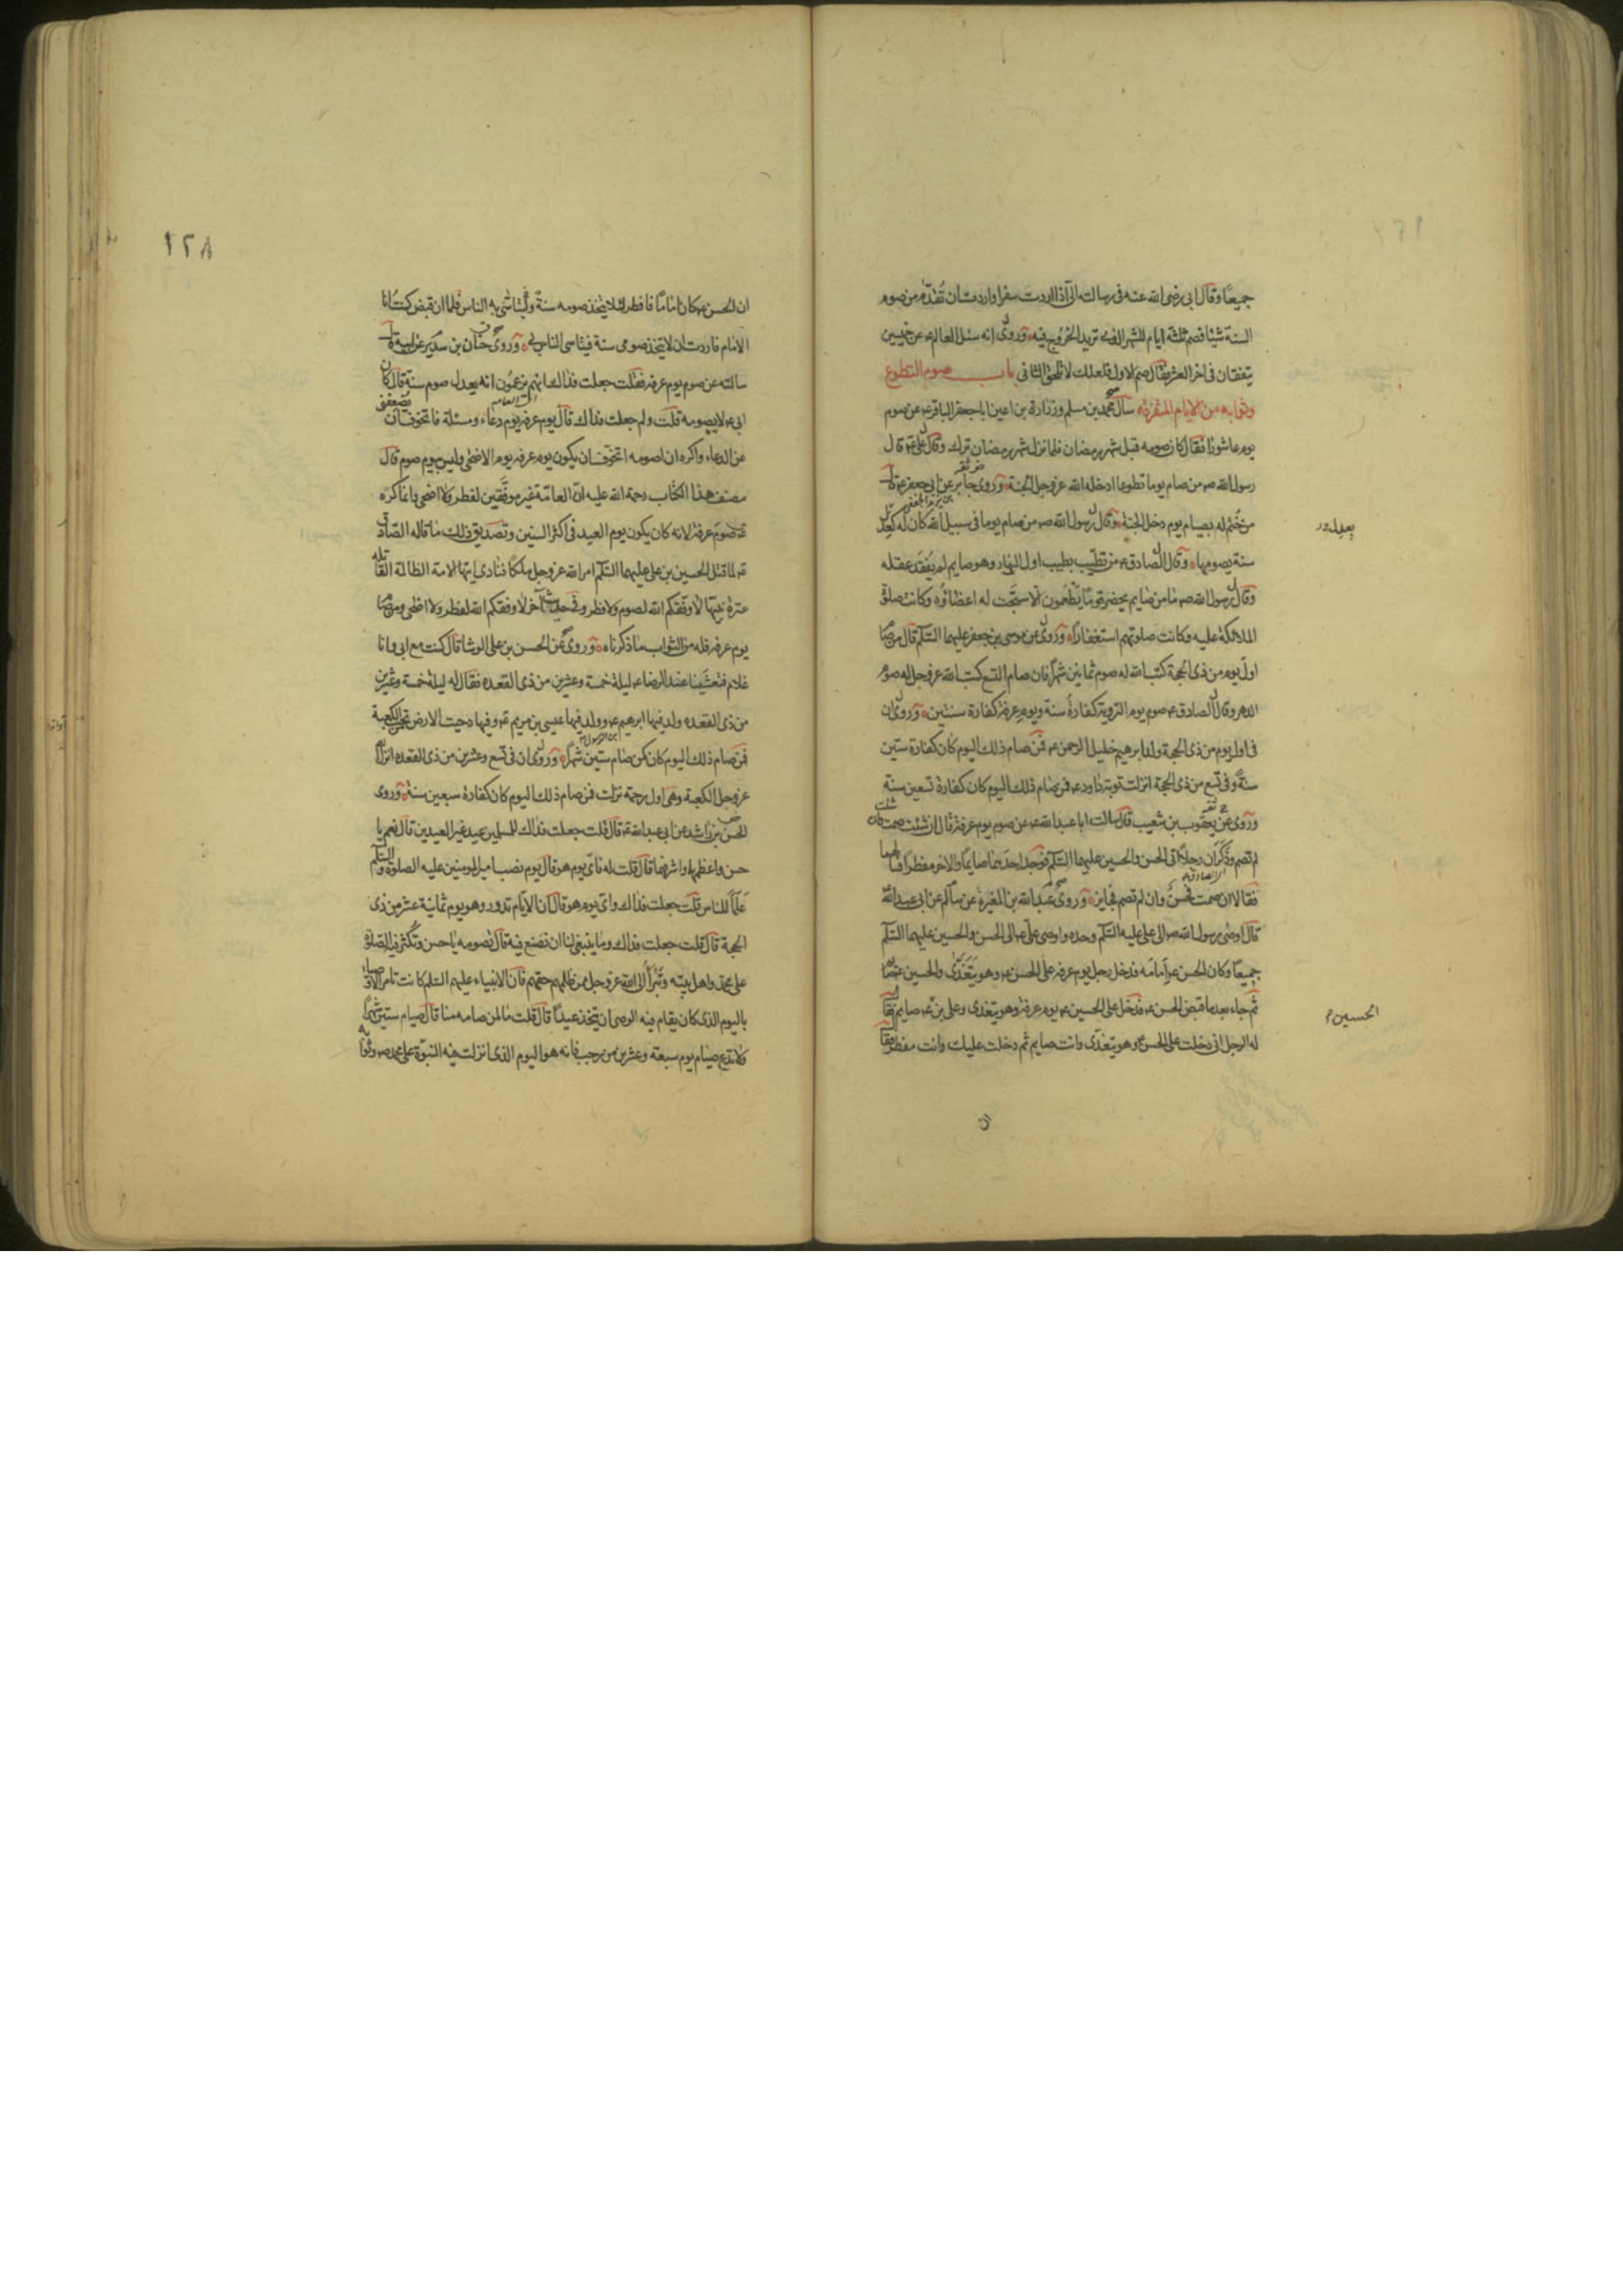 جميعا وقال ابى رضى الله عنه فى رسالته الىّ اذا اردت سفرا واردت ان تُقدّم من صوم
السنة شيئا فصم ثلثة ايام للشهر الذى تريد الخروج فيه وروى انه سئل العالم ع عن خميسين
يتفقان فى اخر العشر فقال صم الاول فلعلك لا تلحق الثانى باب صوم التطوع
وثوابه من الايام المتفرقة سأل محمد بن مسلم وزرارة بن اعين ابا جعفر الباقر ع عن صوم
يوم عاشورا فقال كان صومه قبل شهر رمضان فلما نزل شهر رمضان ترك وقال على ع قال
رسول الله ص من صام يوما تطوعا ادخله الله عز وجل الجنة وروى جابر عن ابى جعفر ع قال
من خُتم له بصيام يوم دخل الجنة وقال رسول الله ص من صام يوما فى سبيل الله كان له كعدل
بن يزيد الجعفى
يعدله
سنة يصومها وقال الصادق ع من تطيّب بطيب اول النهار وهو صايم لم يفقد عقله
وقال رسول الله ص ما من صايم يحضر قوما يطعمون الا سبّحت له اعضاؤه وكانت صلوة
الملائكة عليه وكانت صلوتهم استغفارا وروى عن موسى بن جعفر عليهما السلم قال من صام
اول يوم من ذى الحجة كتب الله له صوم ثمانين شهرا فان صام التسع كتب الله عز وجل له صوم
الدهر وقال الصادق ع صوم يوم التروية كفارة سنة ويوم عرفة كفارة سنتين وروى ان
فى اول يوم من ذى الحجة ولد ابرهيم خليل الرحمن ع فمن صام ذلك اليوم كان كفارة ستين
سنة وفى تسع من ذى الحجة انزلت توبة داود ع فمن صام ذلك اليوم كان كفارة تسعين سنة
وروى عن يعقوب بن شعيب قال سالت ابا عبد الله ع عن صوم يوم عرفة قال ان شئت صمت وان شئت
لم تصم وذكر ان رجلا اتى الحسن والحسين عليهما السلم فوجد احدهما صايما والاخر مفطرا فسالهما
فقالا ان صمت فحسن وان لم تصم فجايز وروى عبد الله بن المغيرة عن سالم عن ابى عبد الله
الصادق ع
قال اوصى رسول الله ص الى على عليه السلم وحده واوصى على ع الى الحسن والحسين عليهما السلم
جميعا وكان الحسن ع امامه فدخل رجل يوم عرفة على الحسن ع وهو يتغدى والحسين ع صايم
ثم جاء بعد ما قبض الحسن ع فدخل على الحسين ع يوم عرفة وهو يتغدى وعلى بن ع صايم فقال
الحسين ع
له الرجل انى دخلت على الحسن ع وهو يتغدى وانت صايم ثم دخلت عليك وانت مفطر فقال
ان
١٢٨
ان الحسن ع كان اماما فافطر لئلا يتخذ صومه سنة وليتاسّى به الناس فلما ان قبض كنت انا
الامام فاردت ان لا يتخذ صومى سنة فيتاسى الناس بى وروى حنان بن سدير عن ابيه قال
سالته عن صوم يوم عرفة فقلت جعلت فداك انهم يزعمون انه يعدل صوم سنة قال كان
ابى ع لا يصومه قلت ولم جعلت فداك قال يوم عرفة يوم دعاء ومسئلة فاتخوف ان تضعفنى
عن الدعاء واكره ان اصومه اتخوف ان يكون يوم عرفة يوم الاضحى وليس بيوم صوم قال
مصنف هذا الكتاب رحمة الله عليه ان العامة غير موفّقين لفطر ولا اضحى وانما كره
ع صوم عرفة لانه كان يكون يوم العيد فى اكثر السنين وتصديق ذلك ما قاله الصادق
ع لما قتل الحسين بن على عليهما السلم امر الله عز وجل ملكا فنادى ايتها الامة الظالمة القاتلة
عترة نبيها لا وفقكم الله لصوم ولا فطر وفى حديث آخر لا وفقكم الله لفطر ولا اضحى ومن صام
يوم عرفة فله من الثواب ما ذكرناه وروى عن الحسن بن على الوشا قال كنت مع ابى وانا
غلام فتعشينا عند الرضا ع ليلة خمسة وعشرين من ذى القعده فقال له ليلة خمسة وعشرين
من ذى القعده ولد فيها ابرهيم ع وولد فيها عيسى بن مريم ع وفيها دحيت الارض من تحت الكعبة
فمن صام ذلك اليوم كان كمن صام ستين شهرا وروى ان فى تسع وعشرين من ذى القعده انزل الله
عز وجل الكعبة وهى اول رحمة نزلت فمن صام ذلك اليوم كان كفارة سبعين سنة وروى
الحسن بن راشد عن ابى عبد الله ع قال قلت جعلت فداك للمسلمين عيد غير العيدين قال نعم يا
حسن واعظمها واشرفها قال قلت له فاى يوم هو قال يوم نصب امير المومنين عليه الصلوة والسلم
علما للناس قلت جعلت فداك واى يوم هو قال ان الايام تدور وهو يوم ثمانية عشر من ذى
الحجة قال قلت جعلت فداك وما ينبغى لنا ان نصنع فيه قال تصومه يا حسن وتكثر فيه الصلوة
على محمد واهل بيته وتبرأ الى الله عز وجل ممن ظلمهم حقهم فان الانبياء عليهم السلم كانت تامر الاوصياء
باليوم الذى كان يقام فيه الوصى ان يتخذ عيدا قال قلت ما لمن صامه منا قال صيام ستين شهرا
ولا تدع صيام يوم سبعة وعشرين من رجب فانه هو اليوم الذى انزلت فيه النبوة على محمد ص وثوابه